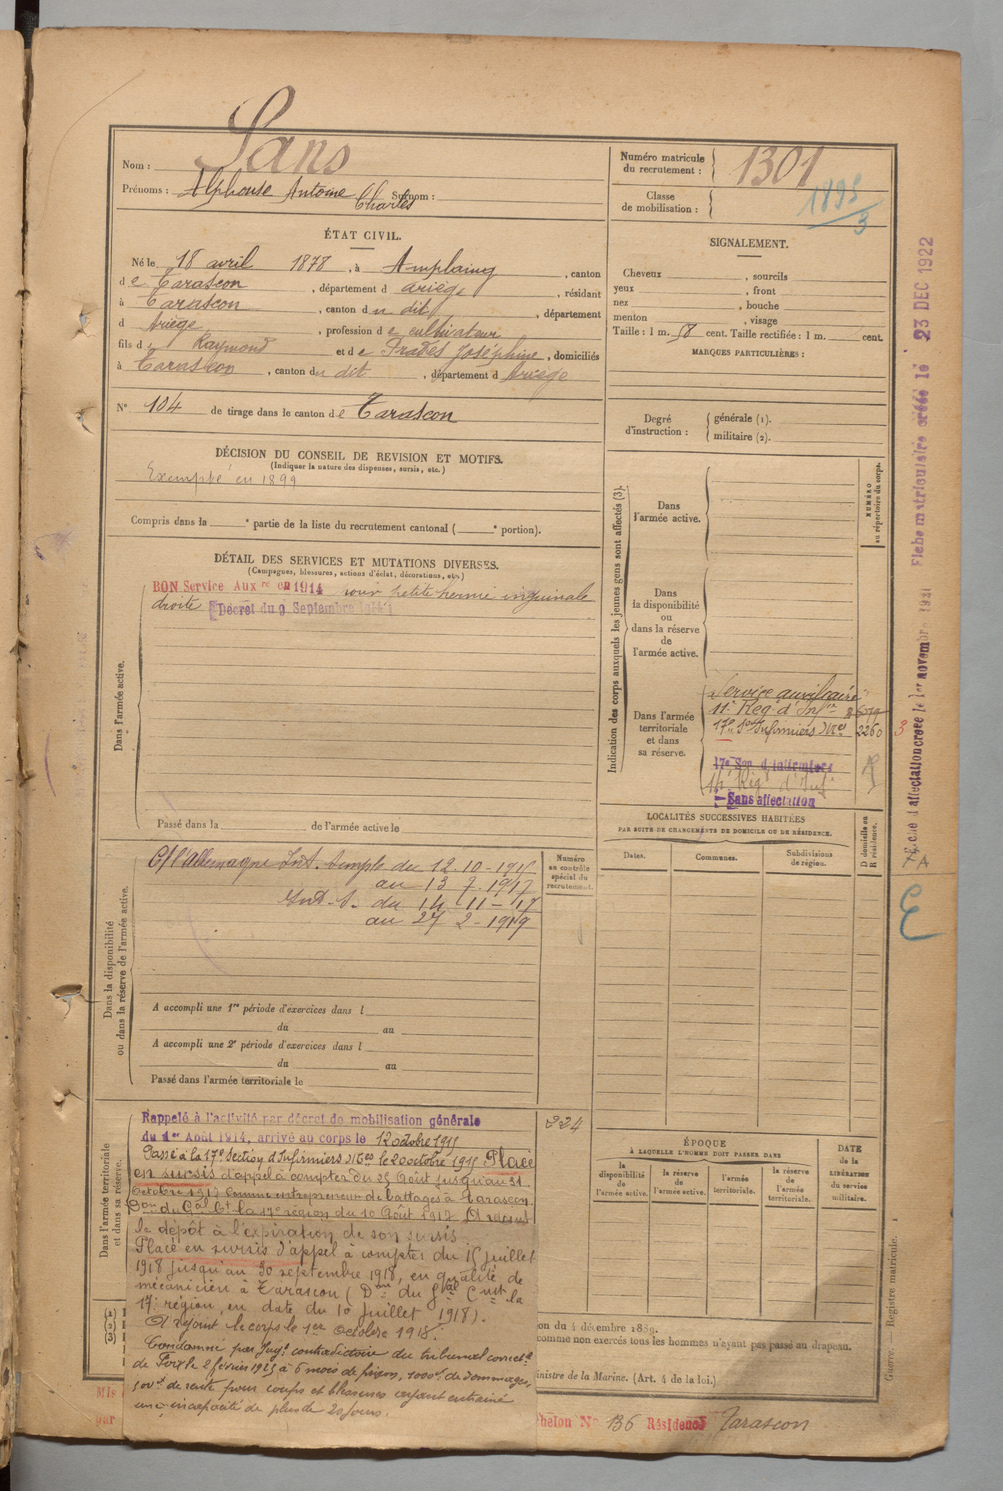 Nom : Sans
Prénoms : Alphonse Antoine Charles Surnom :
Numéro matricule du recrutement : 1301
Classe de mobilisation : 1898/3
ÉTAT CIVIL.
Né le 18 avril 1878, à Amplaing, canton
de Tarascon, département d Ariège, résidant
à Tarascon, canton du dit, département
d Ariège, profession de cultivateur
fils de Raymond et de Prades Joséphine, domiciliés
à Tarascon, canton du dit, département d Ariège
N° 104 de tirage dans le canton de Tarascon
SIGNALEMENT.
Cheveux , sourcils
yeux , front
nez , bouche
menton , visage
Taille : 1 m. 58 cent. Taille rectifiée : 1 m. cent.
MARQUES PARTICULIÈRES :
Degré d'instruction :
générale (1).
militaire (2).
DÉCISION DU CONSEIL DE REVISION ET MOTIFS.
(Indiquer la nature des dispenses, sursis, etc.)
Exempté en 1899
Compris dans la e partie de la liste du recrutement cantonal ( e portion).
DÉTAIL DES SERVICES ET MUTATIONS DIVERSES.
(Campagnes, blessures, actions d'éclat, décorations, etc.)
Dans l'armée active.
BON Service Auxre en 1914 pour petite hernie inguinale
droite Décret du 9 Septembre 1914
Passé dans la de l'armée active le
Indication des corps auxquels les jeunes gens sont affectés (3).
NUMÉRO au répertoire du corps.
Dans l'armée active.
Dans la disponibilité ou dans la réserve de l'armée active.
Dans l'armée territoriale et dans sa réserve.
Service auxiliaire
11e Reg d'Infie
17e Son Infirmiers Mres 2260 3
17e Son d'Infirmiers
Sans affectation
LOCALITÉS SUCCESSIVES HABITÉES
PAR SUITE DE CHANGEMENTS DE DOMICILE OU DE RÉSIDENCE.
Dates.
Communes.
Subdivisions de région.
D domicile ou R résidence.
Dans la disponibilité ou dans la réserve de l'armée active.
Numéro au contrôle spécial du recrutement.
C/ l'Allemagne Int. Simple du 12-10-1915
au 13 7-1917
Int. S. du 14-11-17
au 27 2-1919
A accompli une 1re période d'exercices dans l
du au
A accompli une 2e période d'exercices dans l
du au
Passé dans l'armée territoriale le
Dans l'armée territoriale et dans sa réserve.
Rappelé à l'activité par décret de mobilisation générale
du 1er Août 1914, arrivé au corps le 12 octobre 1915
Passé à la 17e Section d'Infirmiers Mres le 20 octobre 1915 Placé
en sursis d'appel à compter du 25 Août jusqu'au 31
Octobre 1917 comme entrepreneur de battages à Tarascon
Don du Gal Ct la 17e région du 10 Août 1917. A rejoint
le dépôt à l'expiration de son sursis
Placé en sursis d'appel à compter du 15 juillet
1918 jusqu'au 30 septembre 1918, en qualité de
mécanicien à Tarascon (Don du Gal Ct la
17e région, en date du 10 juillet 1918).
A rejoint le corps le 1er octobre 1918.
Condamné par Jugt contradictoire du tribunal correctel
de Foix le 2 février 1925 à 6 mois de prison, 1000f de dommages,
pour coups et blessures ayant entraîné
une incapacité de plus de 20 jours.
224
ÉPOQUE
À LAQUELLE L'HOMME DOIT PASSER DANS
la disponibilité de l'armée active.
la réserve de l'armée active.
l'armée territoriale.
la réserve de l'armée territoriale.
DATE de la LIBÉRATION du service militaire.
on du 4 décembre 1889.
comme non exercés tous les hommes n'ayant pas passé au drapeau.
inistre de la Marine. (Art. 4 de la loi.)
Mis
par
helon N° 136 Résidence Tarascon
Guerre. — Registre matricule. 1
Fiche matriculaire créée le 23 DEC 1922
Fiche d'affectation créée le 1er novembre 1921
E